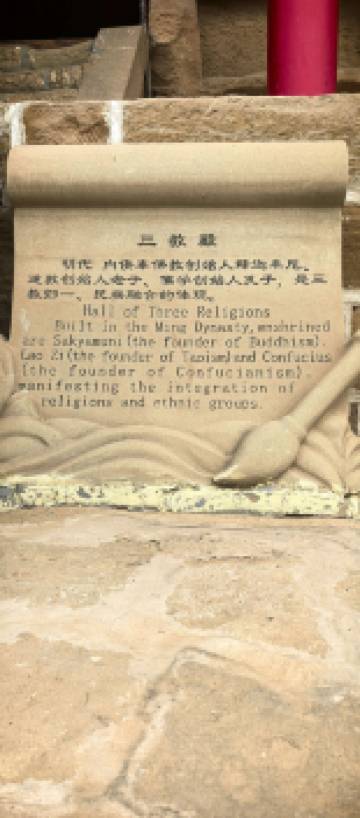 三教殿
明代 内供奉佛教创始人释迦牟尼、
道教创始人老子、儒学创始人孔子，是三
教归一、民族融合的体现。
Hall of Three Religions
Built in the Ming Dynasty,enshrined
are Sakyamuni(the founder of Buddhism).
Lao Zi(the founder of Taoism)and Confucius
(the founder of Confucianism).
manifesting the integration of
religions and ethnic groups.